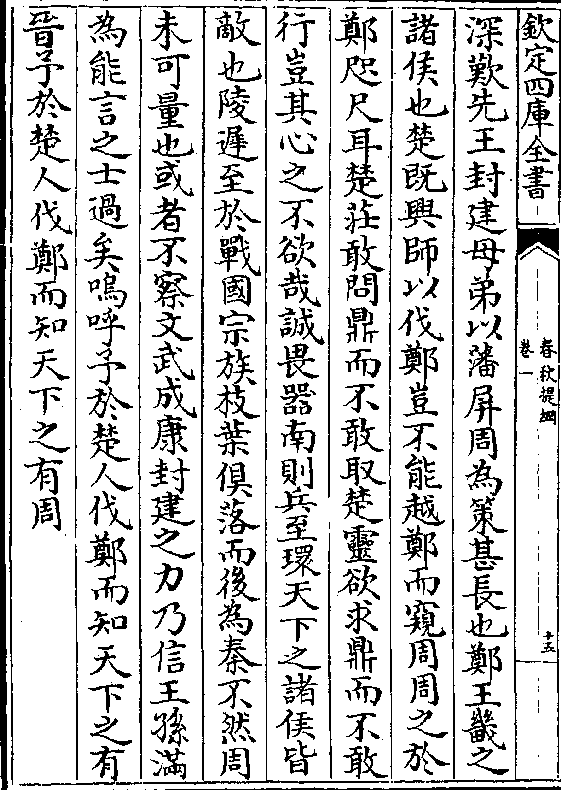 欽定四庫全書
春秋提綱
卷一
十五
深歎先王封建母弟以藩屏周為策甚長也鄭王畿之
諸侯也楚既興師以伐鄭豈不能越鄭而窺周周之於
鄭咫尺耳楚莊敢問鼎而不敢取楚靈欲求鼎而不敢
行豈其心之不欲哉誠畏器南則兵至環天下之諸侯皆
敵也陵遲至於戰國宗族枝葉俱落而後為秦不然周
未可量也或者不察文武成康封建之力乃信王孫滿
為能言之士過矣嗚呼予於楚人伐鄭而知天下之有
晉予於楚人伐鄭而知天下之有周